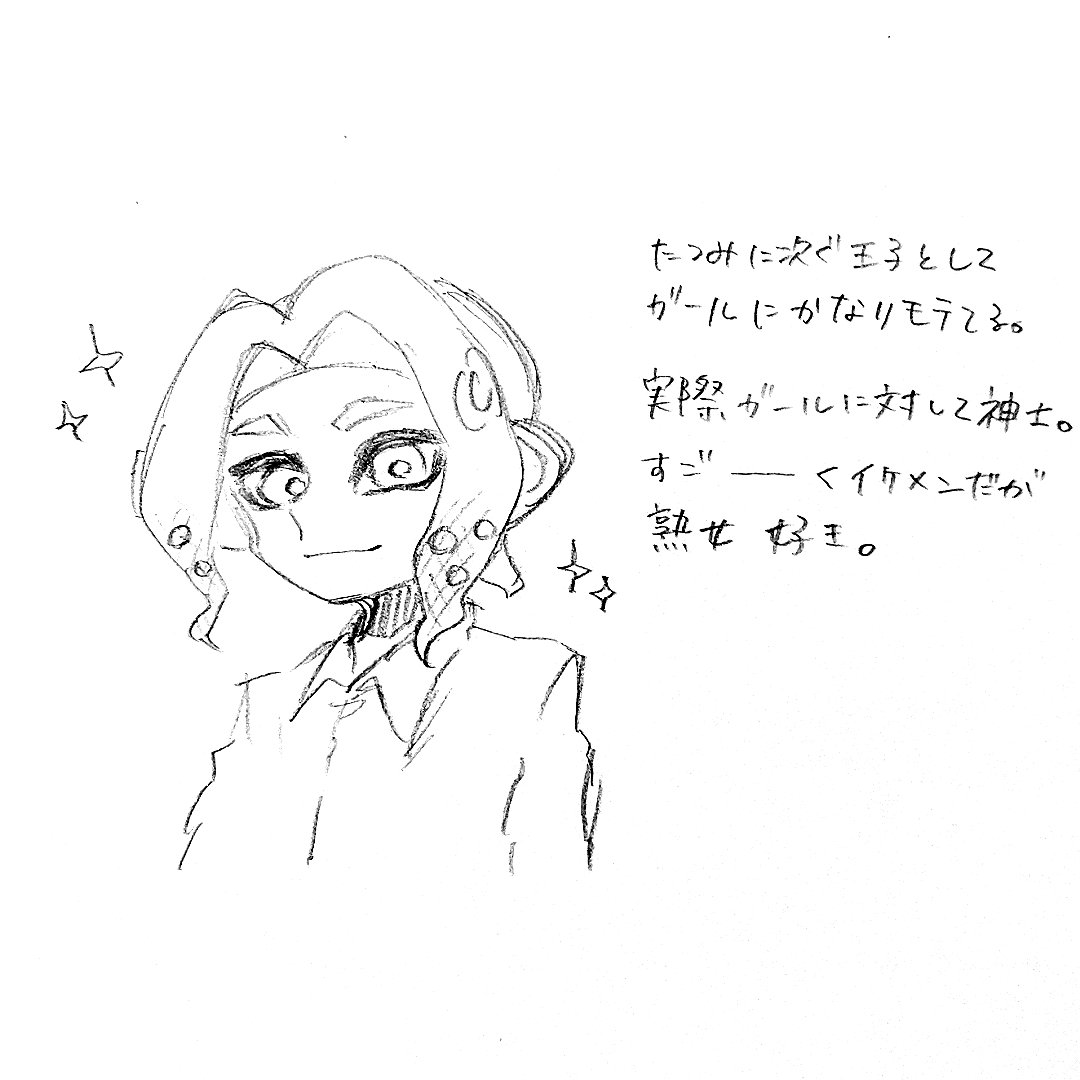 たつみに次ぐ王子として
ガールにかなりモテてる。
実際ガールに対して神士。
すご――くイケメンだが
熟女好き。